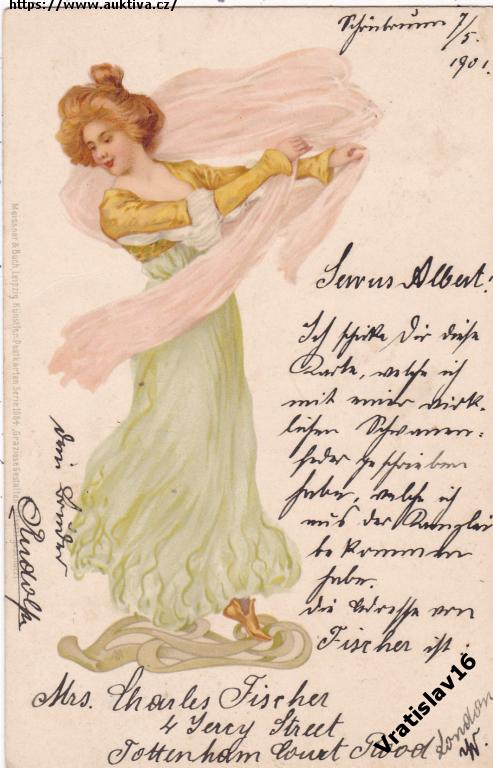 https://www.auktiva.cz/
Schönbrunn 7/5.
1901.
Meissner & Buch, Leipzig. Künstler-Postkarten Serie 1084 „Graziöse Gestalten
Servus Albert!
Ich schicke Dir diese
Karte, welche ich
mit einer wirk-
lichen Schwanen-
feder geschrieben
habe, welche ich
aus der Kanzlei
bekommen
habe.
Die Adresse von
Fischer ist:
Mrs. Charles Fischer
4 Street
Tottenham Court Road
London
W.
dein Bruder
Rudolf
Vratislav16